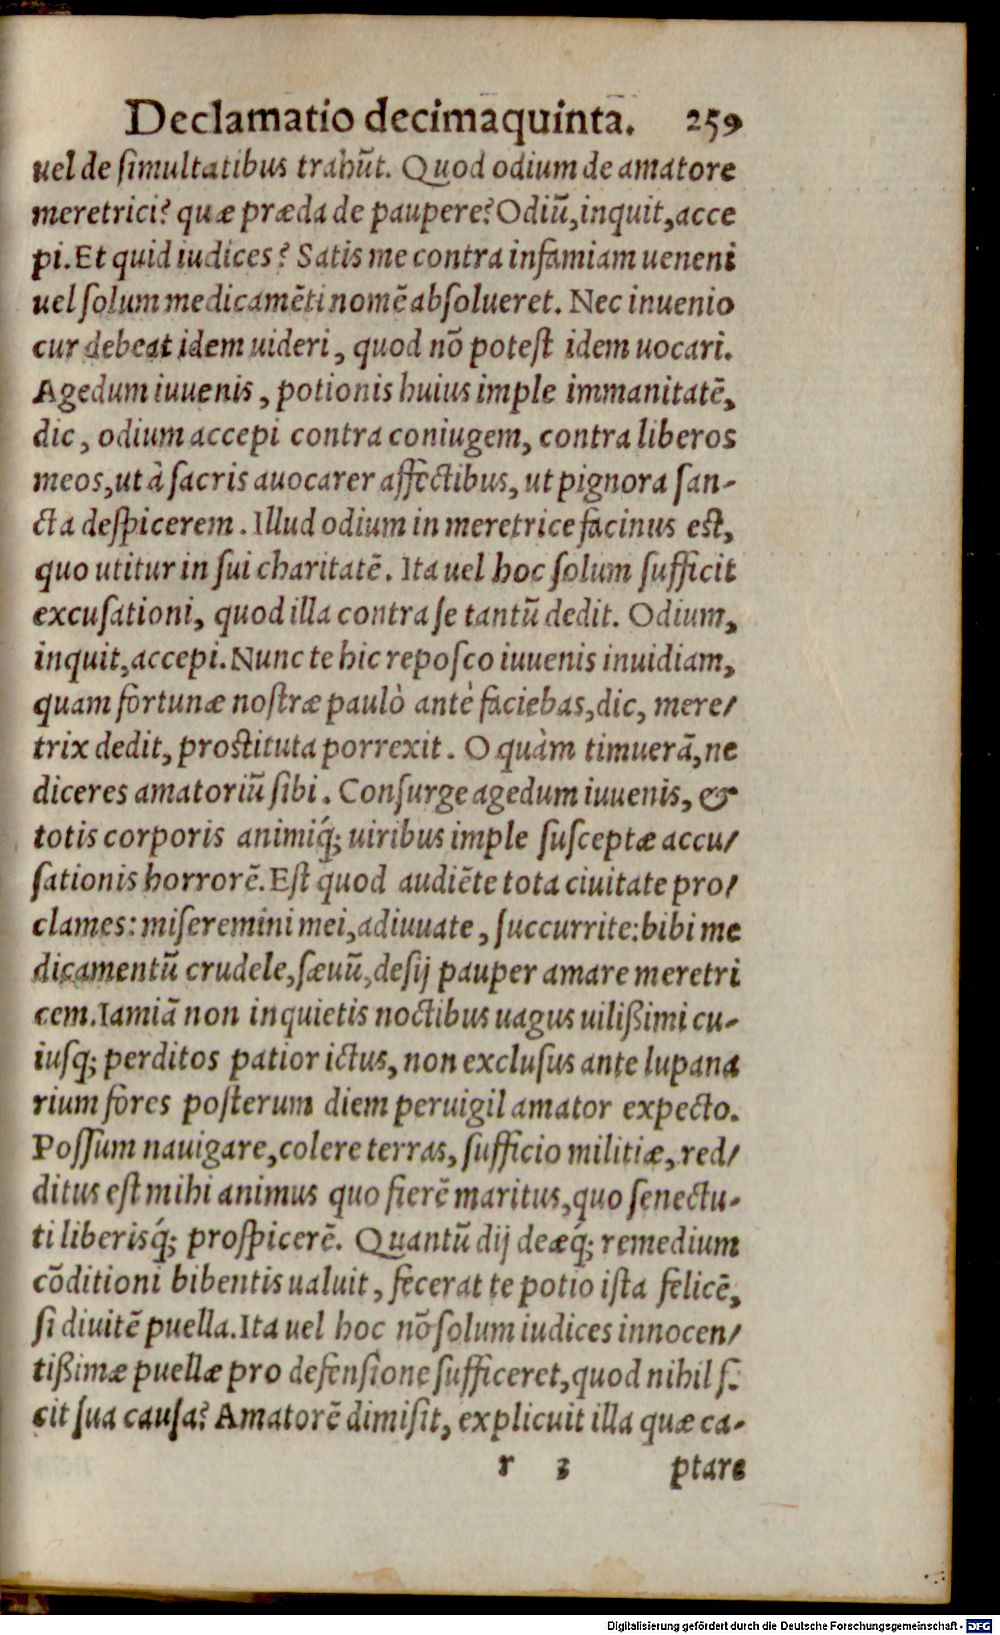 Declamatio decimaquinta. 259
uel de ſimultatibus trahũt. Quod odium de amatore
meretrici? quæ præda de paupere? Odiũ, inquit, acce
pi. Et quid iudices? Satis me contra infamiam ueneni
uel ſolum medicamẽti nomẽ abſolueret. Nec inuenio
cur debeat idem uideri, quod nõ poteſt idem uocari.
Agedum iuuenis, potionis huius imple immanitatẽ,
dic, odium accepi contra coniugem, contra liberos
meos, ut à ſacris auocarer affectibus, ut pignora ſan-
cta deſpicerem. Illud odium in meretrice facinus eſt,
quo utitur in ſui charitatẽ. Ita uel hoc ſolum ſufficit
excuſationi, quod illa contra ſe tantũ dedit. Odium,
inquit, accepi. Nunc te hic repoſco iuuenis inuidiam,
quam fortunæ noſtræ paulò antè faciebas, dic, mere/
trix dedit, proſtituta porrexit. O quàm timuerã, ne
diceres amatoriũ ſibi. Conſurge agedum iuuenis, &
totis corporis animiq́; uiribus imple ſuſceptæ accu/
ſationis horrorẽ. Eſt quod audiẽte tota ciuitate pro/
clames: miſeremini mei, adiuuate, ſuccurrite: bibi me
dicamentũ crudele, ſæuũ, deſij pauper amare meretri
cem. Iamiã non inquietis noctibus uagus uilißimi cu-
iuſq; perditos patior ictus, non excluſus ante lupana
rium fores poſterum diem peruigil amator expecto.
Poſſum nauigare, colere terras, ſufficio militiæ, red/
ditus eſt mihi animus quo fierẽ maritus, quo ſenectu-
ti liberisq́; proſpicerẽ. Quantũ dij deæq́; remedium
cõditioni bibentis ualuit, fecerat te potio iſta felicẽ,
ſi diuitẽ puella. Ita uel hoc nõ ſolum iudices innocen/
tißimæ puellæ pro defenſione ſufficeret, quod nihil f.
cit ſua cauſa? Amatorẽ dimiſit, explicuit illa quæ ca-
r 3 ptare
Digitalisierung gefördert durch die Deutsche Forschungsgemeinschaft - DFG